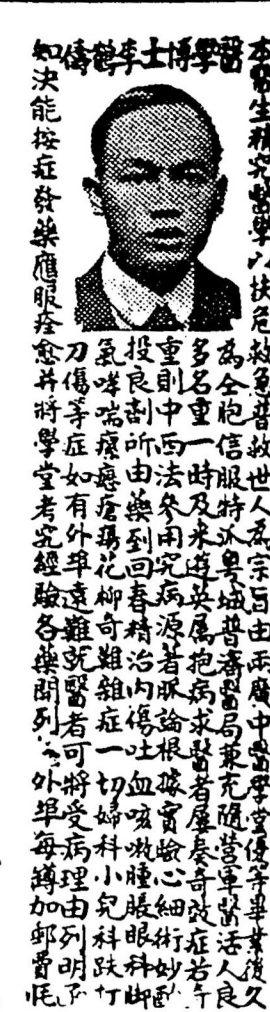 醫學博士李鶴儔
本醫生精究醫學以扶危救急普救世人為宗旨由兩廣中醫學堂優等畢業後久
為仝胞信服特派粵城普濟醫局兼充隨營軍醫活人良
多名重一時及米遊英屬抱病求醫者屢奏奇效症若
重則中西法參用究病源者脈論根據實驗心細術妙酌
投良劑所由藥到回春精治內傷吐血咳嗽腫脹眼科脚
氣哮喘瘰癧瘡花柳奇難雜症一切婦科小兒科跌打
刀傷等症如有外埠遠難就醫者可將受病理由列明函
知決能按症發藥應服痊愈并將學堂考究經驗各藥開列外埠每罇加郵費